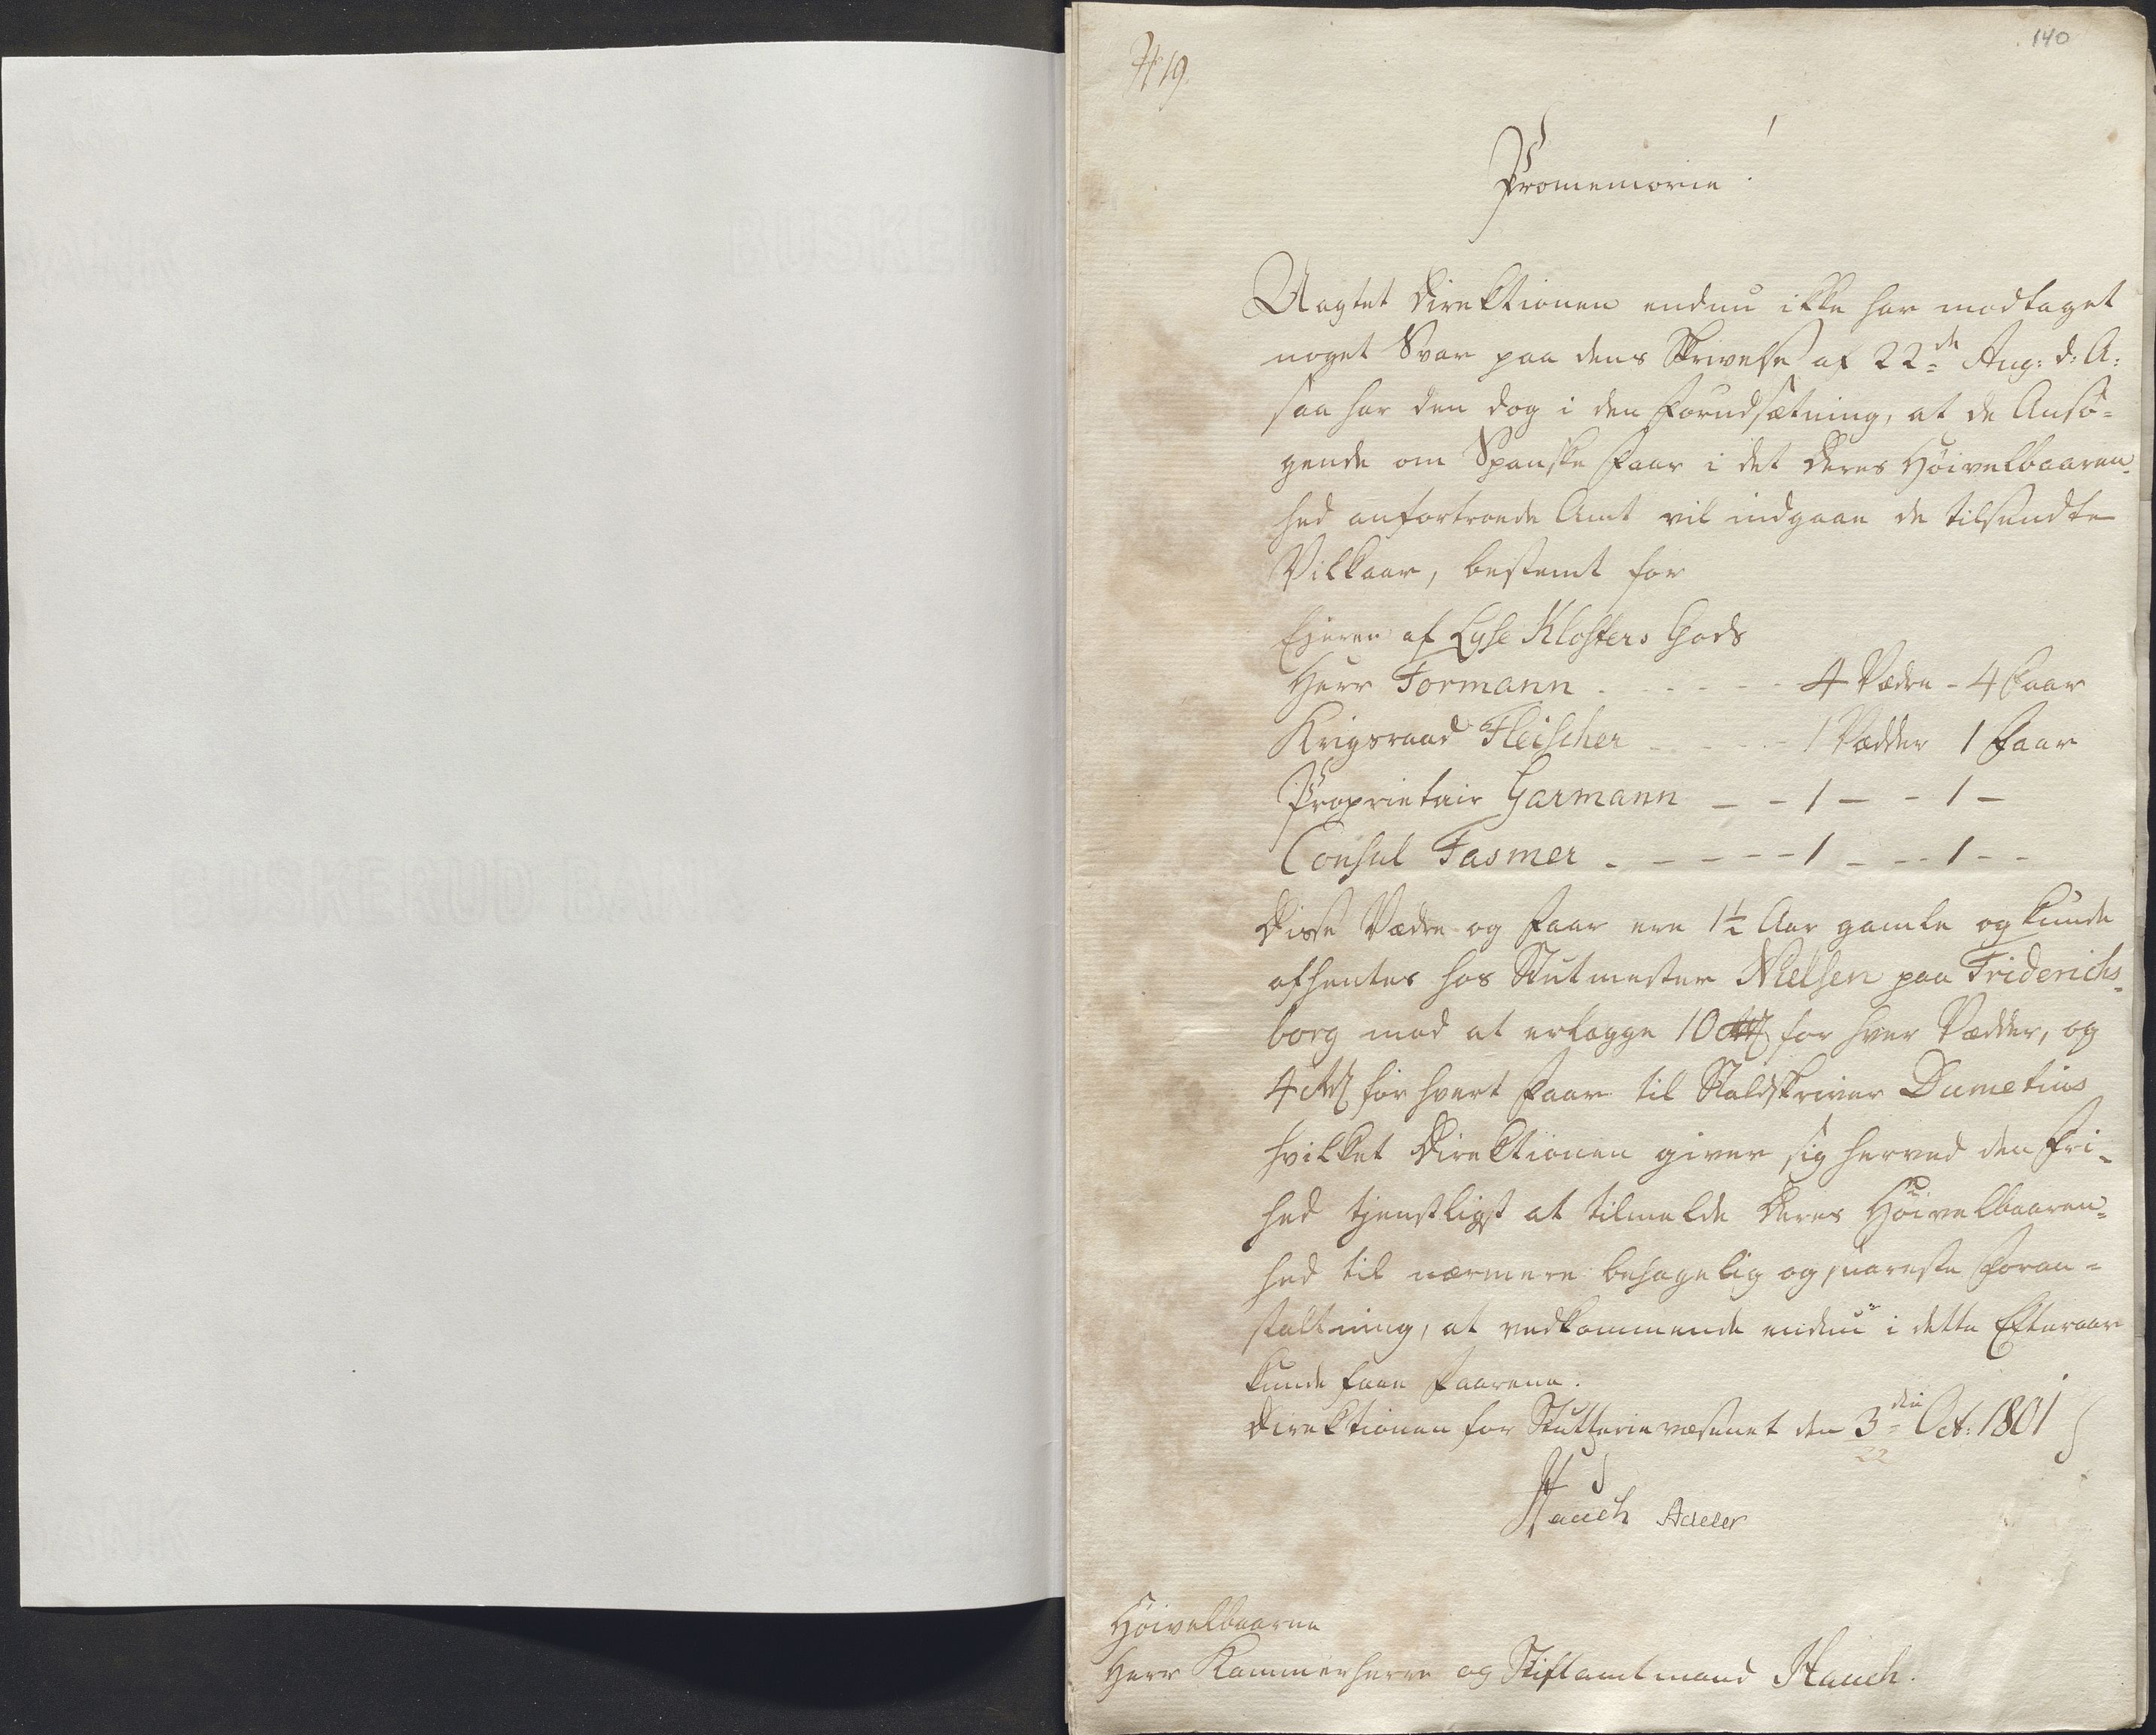 140
№ 19.
Promemorie!
Uagtet Direktionen endnu ikke har modtaget
noget Svar paa dens Skrivelse af 22de Aug: d: A:
saa har den dog i den Forudsætning, at de Ansø-
gende om Spanske Faar i det Deres Høivelbaaren-
hed anfortroede Amt vil indgaae de tilsendte
Vilkaar, bestemt for
Ejeren af Lyse Klosters Gods
Herr Formann . - - - - - 4 Vædre - 4 Faar
Krigsraad Fleischer - - - - 1 Vædder 1 Faar
Proprietair Garmann - - 1 - - 1 -
Consul Fasmer - - - - - 1 - - - 1 - -
Disse Vædre og Faar ere 1½ Aar gamle og kunde
afhentes hos Stutmester Nielsen paa Friderichs-
borg mod at erlægge 10 Rdl for hver Vædder, og
4 Rdl for hvert Faar til Staldskriver Dumetius
hvilket Direktionen giver sig herved den Fri-
hed tjenstligst at tilmelde Deres Høivelbaaren-
hed til nærmere behagelig og snareste Foran-
staltning, at vedkommende endnu i dette Efteraar
kunde faae Faarene.
Direktionen for Stutterievæsenet den 3die Oct: 1801
22
Hauch Adeler
Høivelbaarne
Herr Kammerherre og Stiftamtmand Hauch.